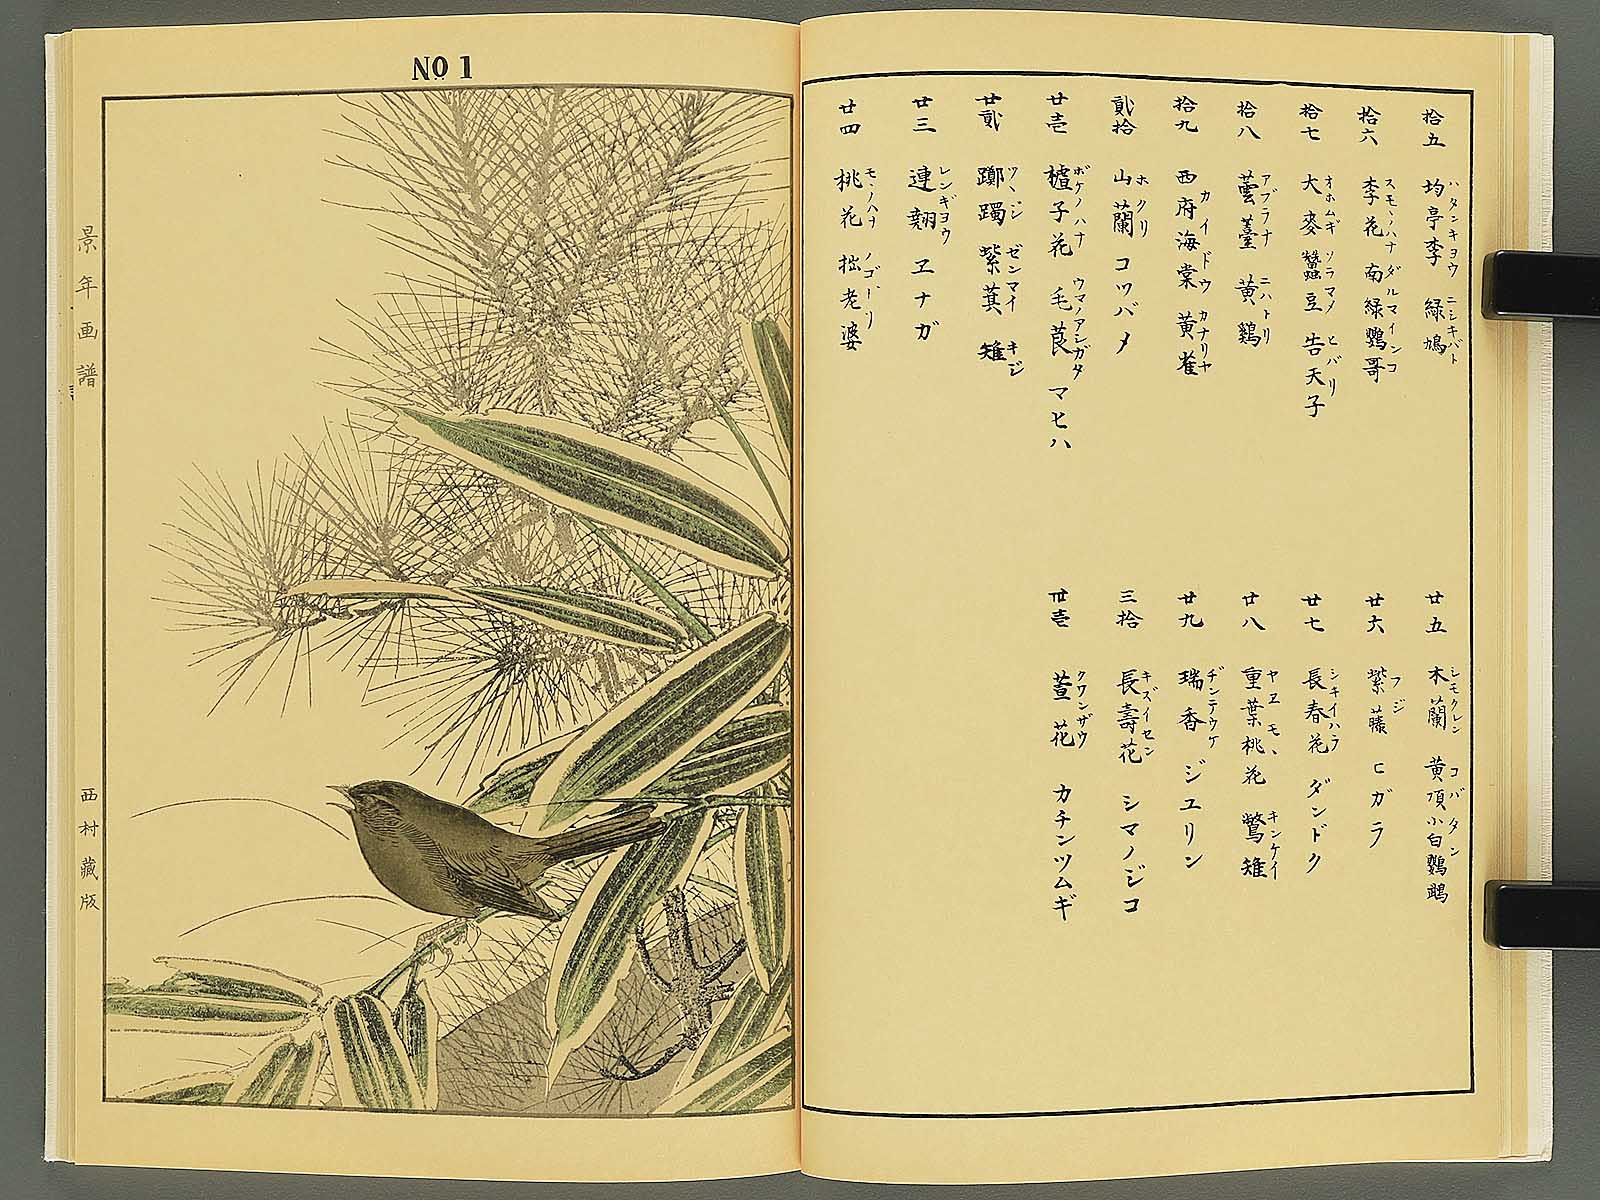 拾五 均亭李 ハタンキヨウ 緑鳩 ニシキバト
拾六 李花 スモヽハナ 南緑鸚哥 ダルマインコ
拾七 大麥 オホムギ 蠶豆 ソラマメ 告天子 ヒバリ
拾八 蕓薹 アブラナ 黄鷄 ニハトリ
拾九 西府海棠 カイドウ 黄雀 カナリヤ
貮拾 山蘭 ホクリ コツバメ
廿壱 樝子花 ボケノハナ 毛莨 ウマノアシガタ マヒハ
廿貮 躑躅 ツヽジ 紫萁 ゼンマイ 雉 キジ
廿三 連翹 レンギヨウ ヱナガ
廿四 桃花 モヽノハナ 拙老婆 ノゴドリ
廿五 木蘭 シモクレン 黄頂小白鸚鵡 コバタン
廿六 紫藤 フジ ヒガラ
廿七 長春花 シキイハラ ダンドク
廿八 重葉桃花 ヤヱモヽ 鷩雉 キンケイ
廿九 瑞香 ヂンテウケ ジユリン
三拾 長壽花 キズイセン シマノジコ
丗壱 萱花 クワンザウ カチンツムギ
NO 1
景年画譜
西村藏版